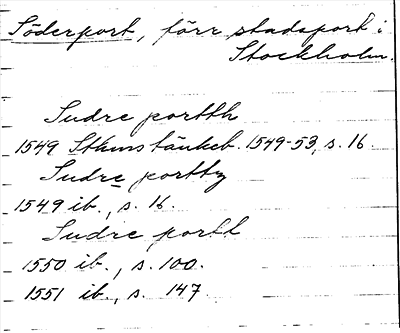 Söderport, förr stadsport i
Stockholm.
Sudre portth
1549 Sthms tänkeb. 1549-53, s. 16.
Sudre porttz
1549 ib., s. 16.
Sudre portt
1550 ib., s. 100.
1551 ib., s. 147.